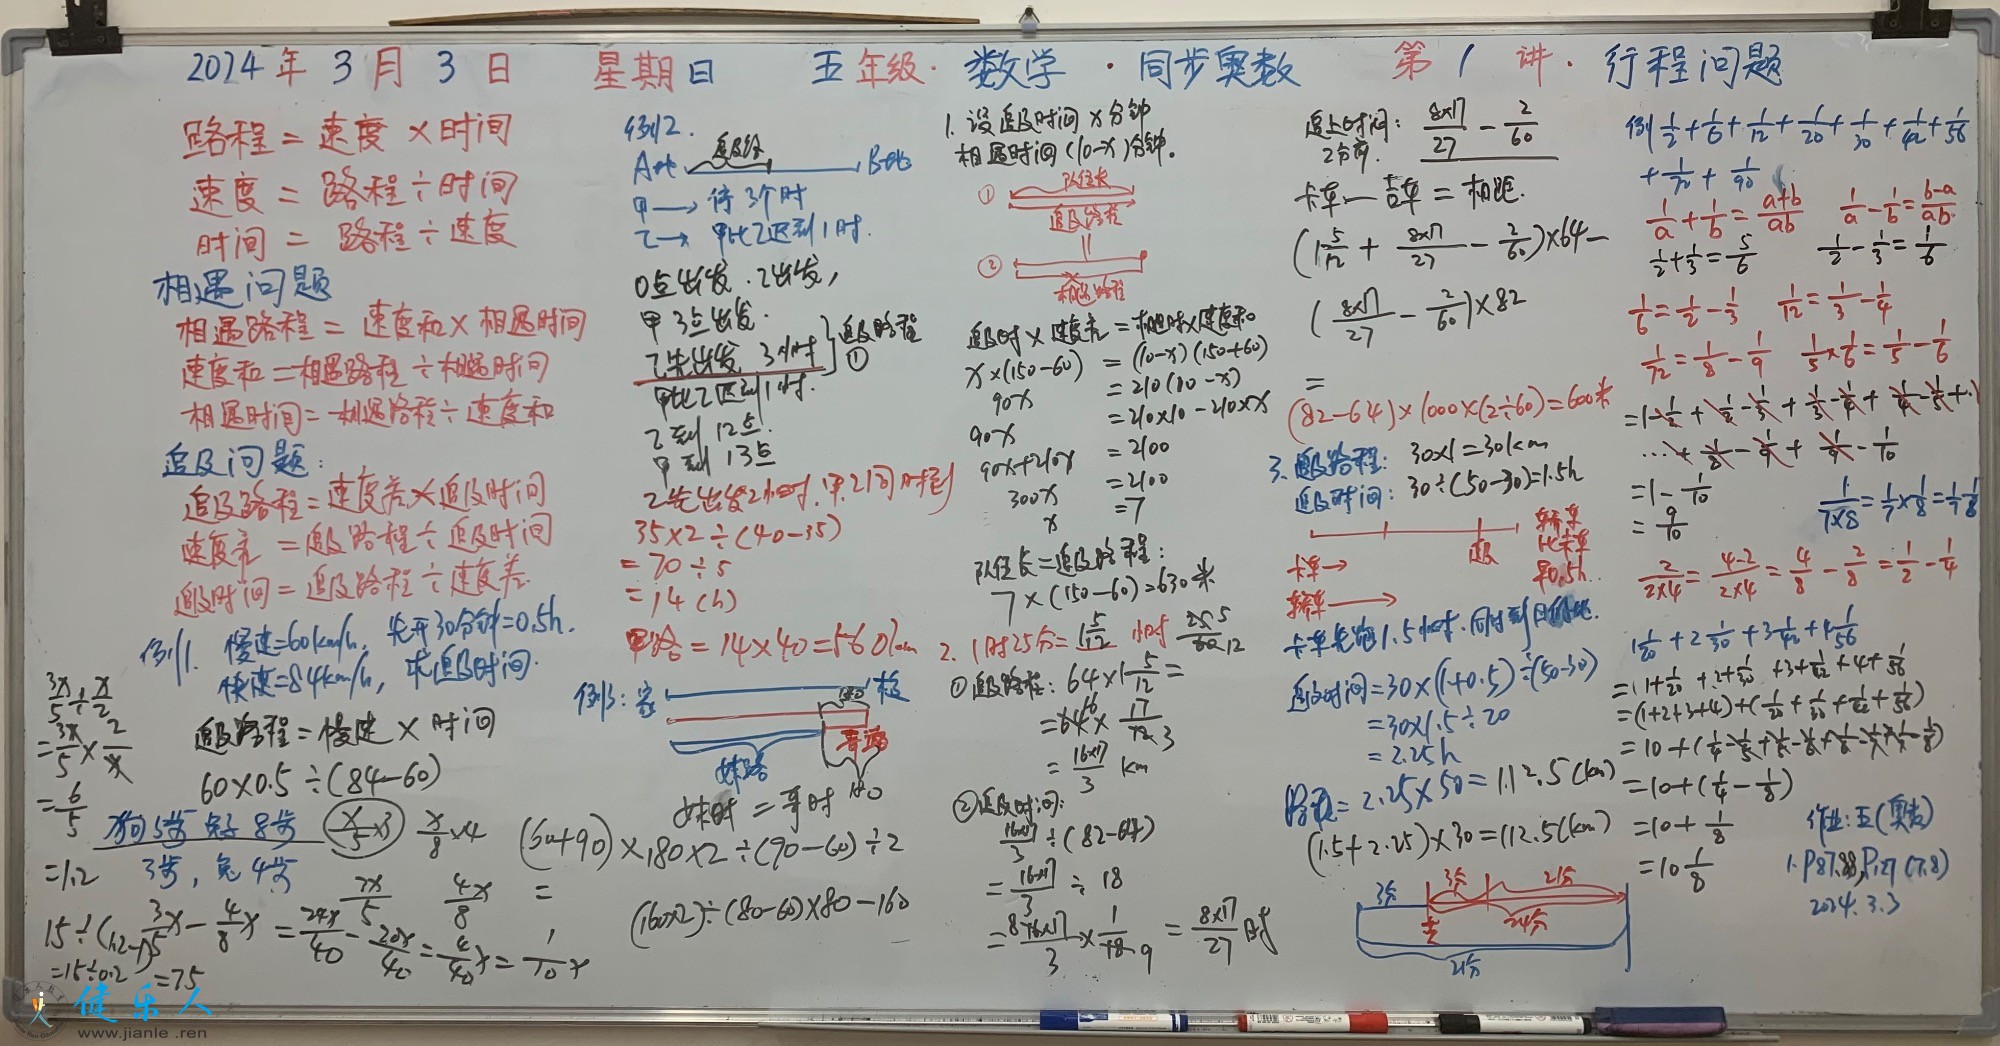 2024年3月3日 星期日 五年级·数学·同步奥数 第1讲·行程问题
路程=速度×时间
速度=路程÷时间
时间=路程÷速度
相遇问题
相遇路程=速度和×相遇时间
速度和=相遇路程÷相遇时间
相遇时间=相遇路程÷速度和
追及问题:
追及路程=速度差×追及时间
速度差=追及路程÷追及时间
追及时间=追及路程÷速度差
例1. 慢速=60km/h, 先开30分钟=0.5h.
快速=84km/h, 求追及时间.
追及路程=慢速×时间
60×0.5÷(84-60)
3x/5÷x/2
=3x/5×2/x
=6/5
=1.2
狗5步 兔子8步
3步, 兔4步
x/5×3 x/8×4
3x/5 4x/8
15÷(1.2-1)
=15÷0.2
=75
3/5x-4/8x=24x/40-20x/40=4/40x=1/10x
例2.
A地 追及路 B地
甲→停3个时
乙→甲比乙迟到1时.
0点出发.乙出发,
甲3点出发.
乙先出发3小时 }追及路程①
甲比乙迟到1时.
乙到12点.
甲到13点
乙先出发2小时.甲.乙同时到
35×2÷(40-35)
=70÷5
=14(h)
甲路=14×40=560km
例3: 家 180 校
妹路 哥 180
妹时=哥时
(60+90)×180×2÷(90-60)÷2
=
(160×2)÷(80-60)×80-160
1. 设追及时间x分钟
相遇时间(10-x)分钟.
① 队伍长
追及路程
②
相遇路程
追及时×速度差=相遇时×速度和
x×(150-60)=(10-x)(150+60)
90x=210(10-x)
90x=210×10-210×x
90x+210x=2100
300x=2100
x=7
队伍长=追及路程:
7×(150-60)=630米
2. 1时25分=1 5/12小时 25 5/60 12
①追及路程: 64×1 5/12=
=64×17/12
=16×17/3 km
②追及时间:
16×17/3÷(82-64)
=16×17/3÷18
=16×17/3×1/18=8×17/27时
追上时间: 8×17/27-2/60
2分前.
卡车-吉车=相距.
(1 5/12+8×17/27-2/60)×64-
(8×17/27-2/60)×82
=
(82-64)×1000×(2÷60)=600米
3. 追及路程: 30×1=30km
追及时间: 30÷(50-30)=1.5h
卡车→
轿车→
追及
轿车比卡车早0.5h.
卡车先跑1.5小时.同时到目的地.
追及时间=30×(1+0.5)÷(50-30)
=30×1.5÷20
=2.25h
路程=2.25×50=112.5(km)
(1.5+2.25)×30=112.5(km)
3分 3分 21分
24分
21分
例 1/2+1/6+1/12+1/20+1/30+1/42+1/56
+1/72+1/90
1/a+1/b=a+b/ab 1/a-1/b=b-a/ab
1/2+1/3=5/6 1/2-1/3=1/6
1/6=1/2-1/3 1/12=1/3-1/4
1/72=1/8-1/9 1/5×1/6=1/5-1/6
=1-1/2+1/2-1/3+1/3-1/4+1/4-1/5+…
…+1/8-1/9+1/9-1/10
=1-1/10
=9/10
1/7×8=1/7×1/8=1/7-1/8
2/2×4=4-2/2×4=4/8-2/8=1/2-1/4
1 1/20+2 1/30+3 1/42+4 1/56
=1+1/20+2+1/30+3+1/42+4+1/56
=(1+2+3+4)+(1/20+1/30+1/42+1/56)
=10+(1/4-1/5+1/5-1/6+1/6-1/7+1/7-1/8)
=10+(1/4-1/8)
=10+1/8
=10 1/8
作业:五(奥数)
1.P87.88,P.127(7.8)
2024.3.3
健乐人
www.jianle.ren